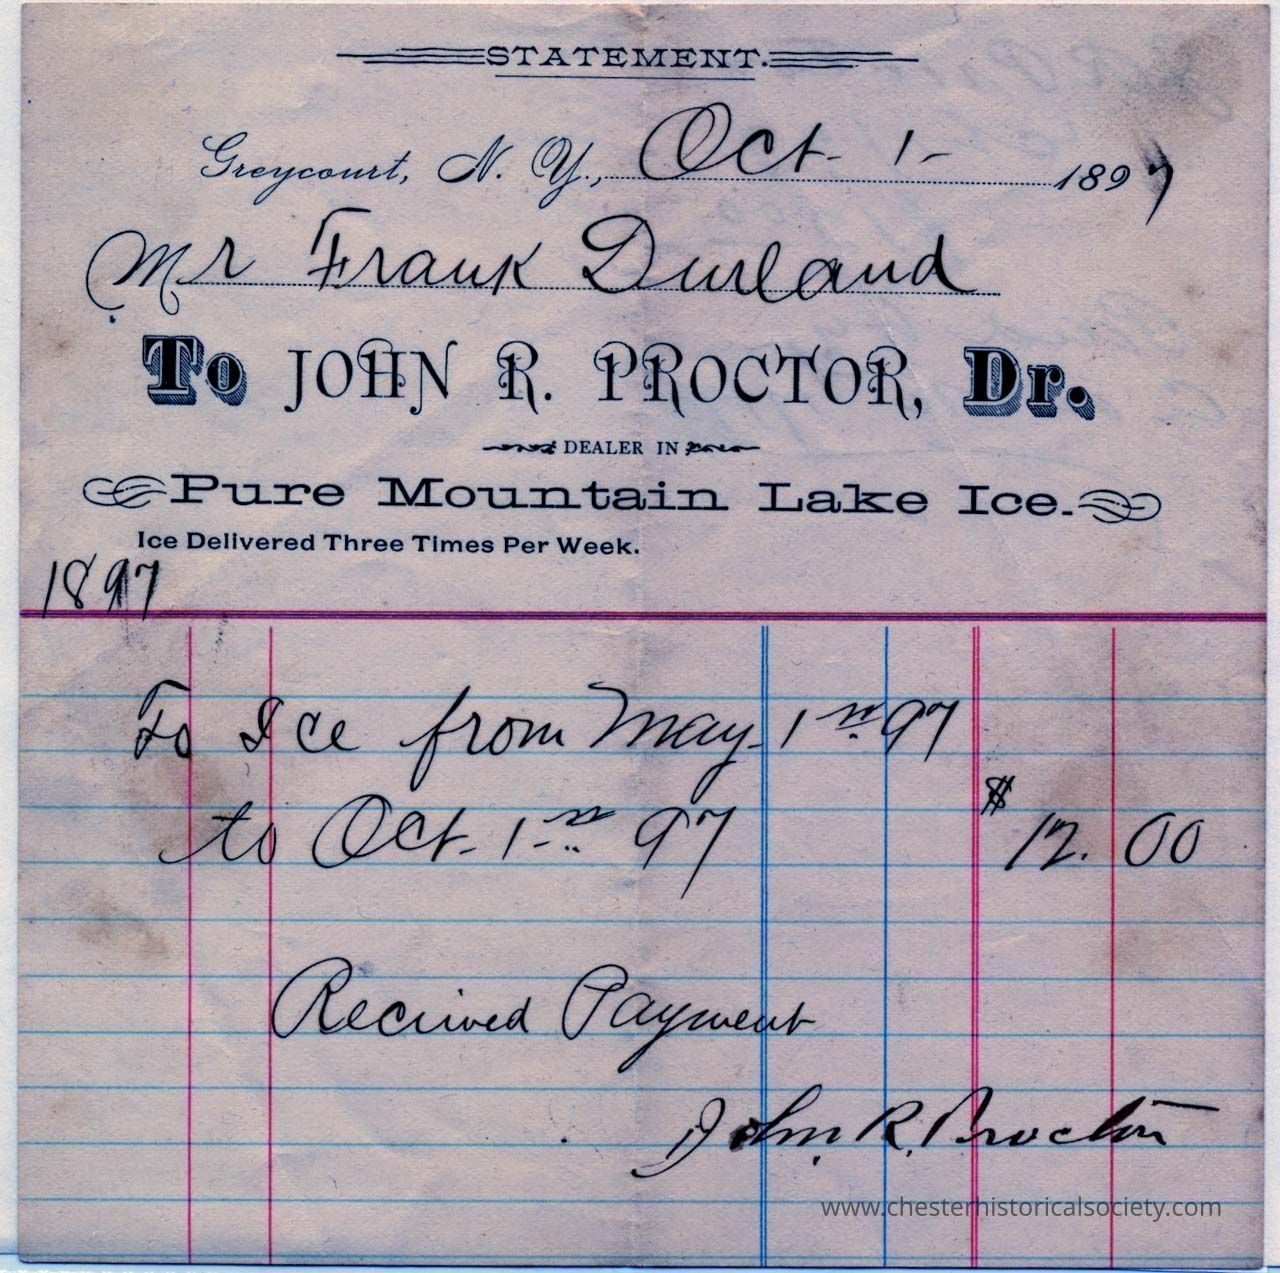 STATEMENT.
Greycourt, N. Y., Oct 1- 1897
Mr Frank Durland
To JOHN R. PROCTOR, Dr.
DEALER IN
Pure Mountain Lake Ice.
Ice Delivered Three Times Per Week.
1897
To Ice from May 1st 97
to Oct. 1st 97 $12.00
Recived Payment
John R. Proctor
www.chesterhistoricalsociety.com